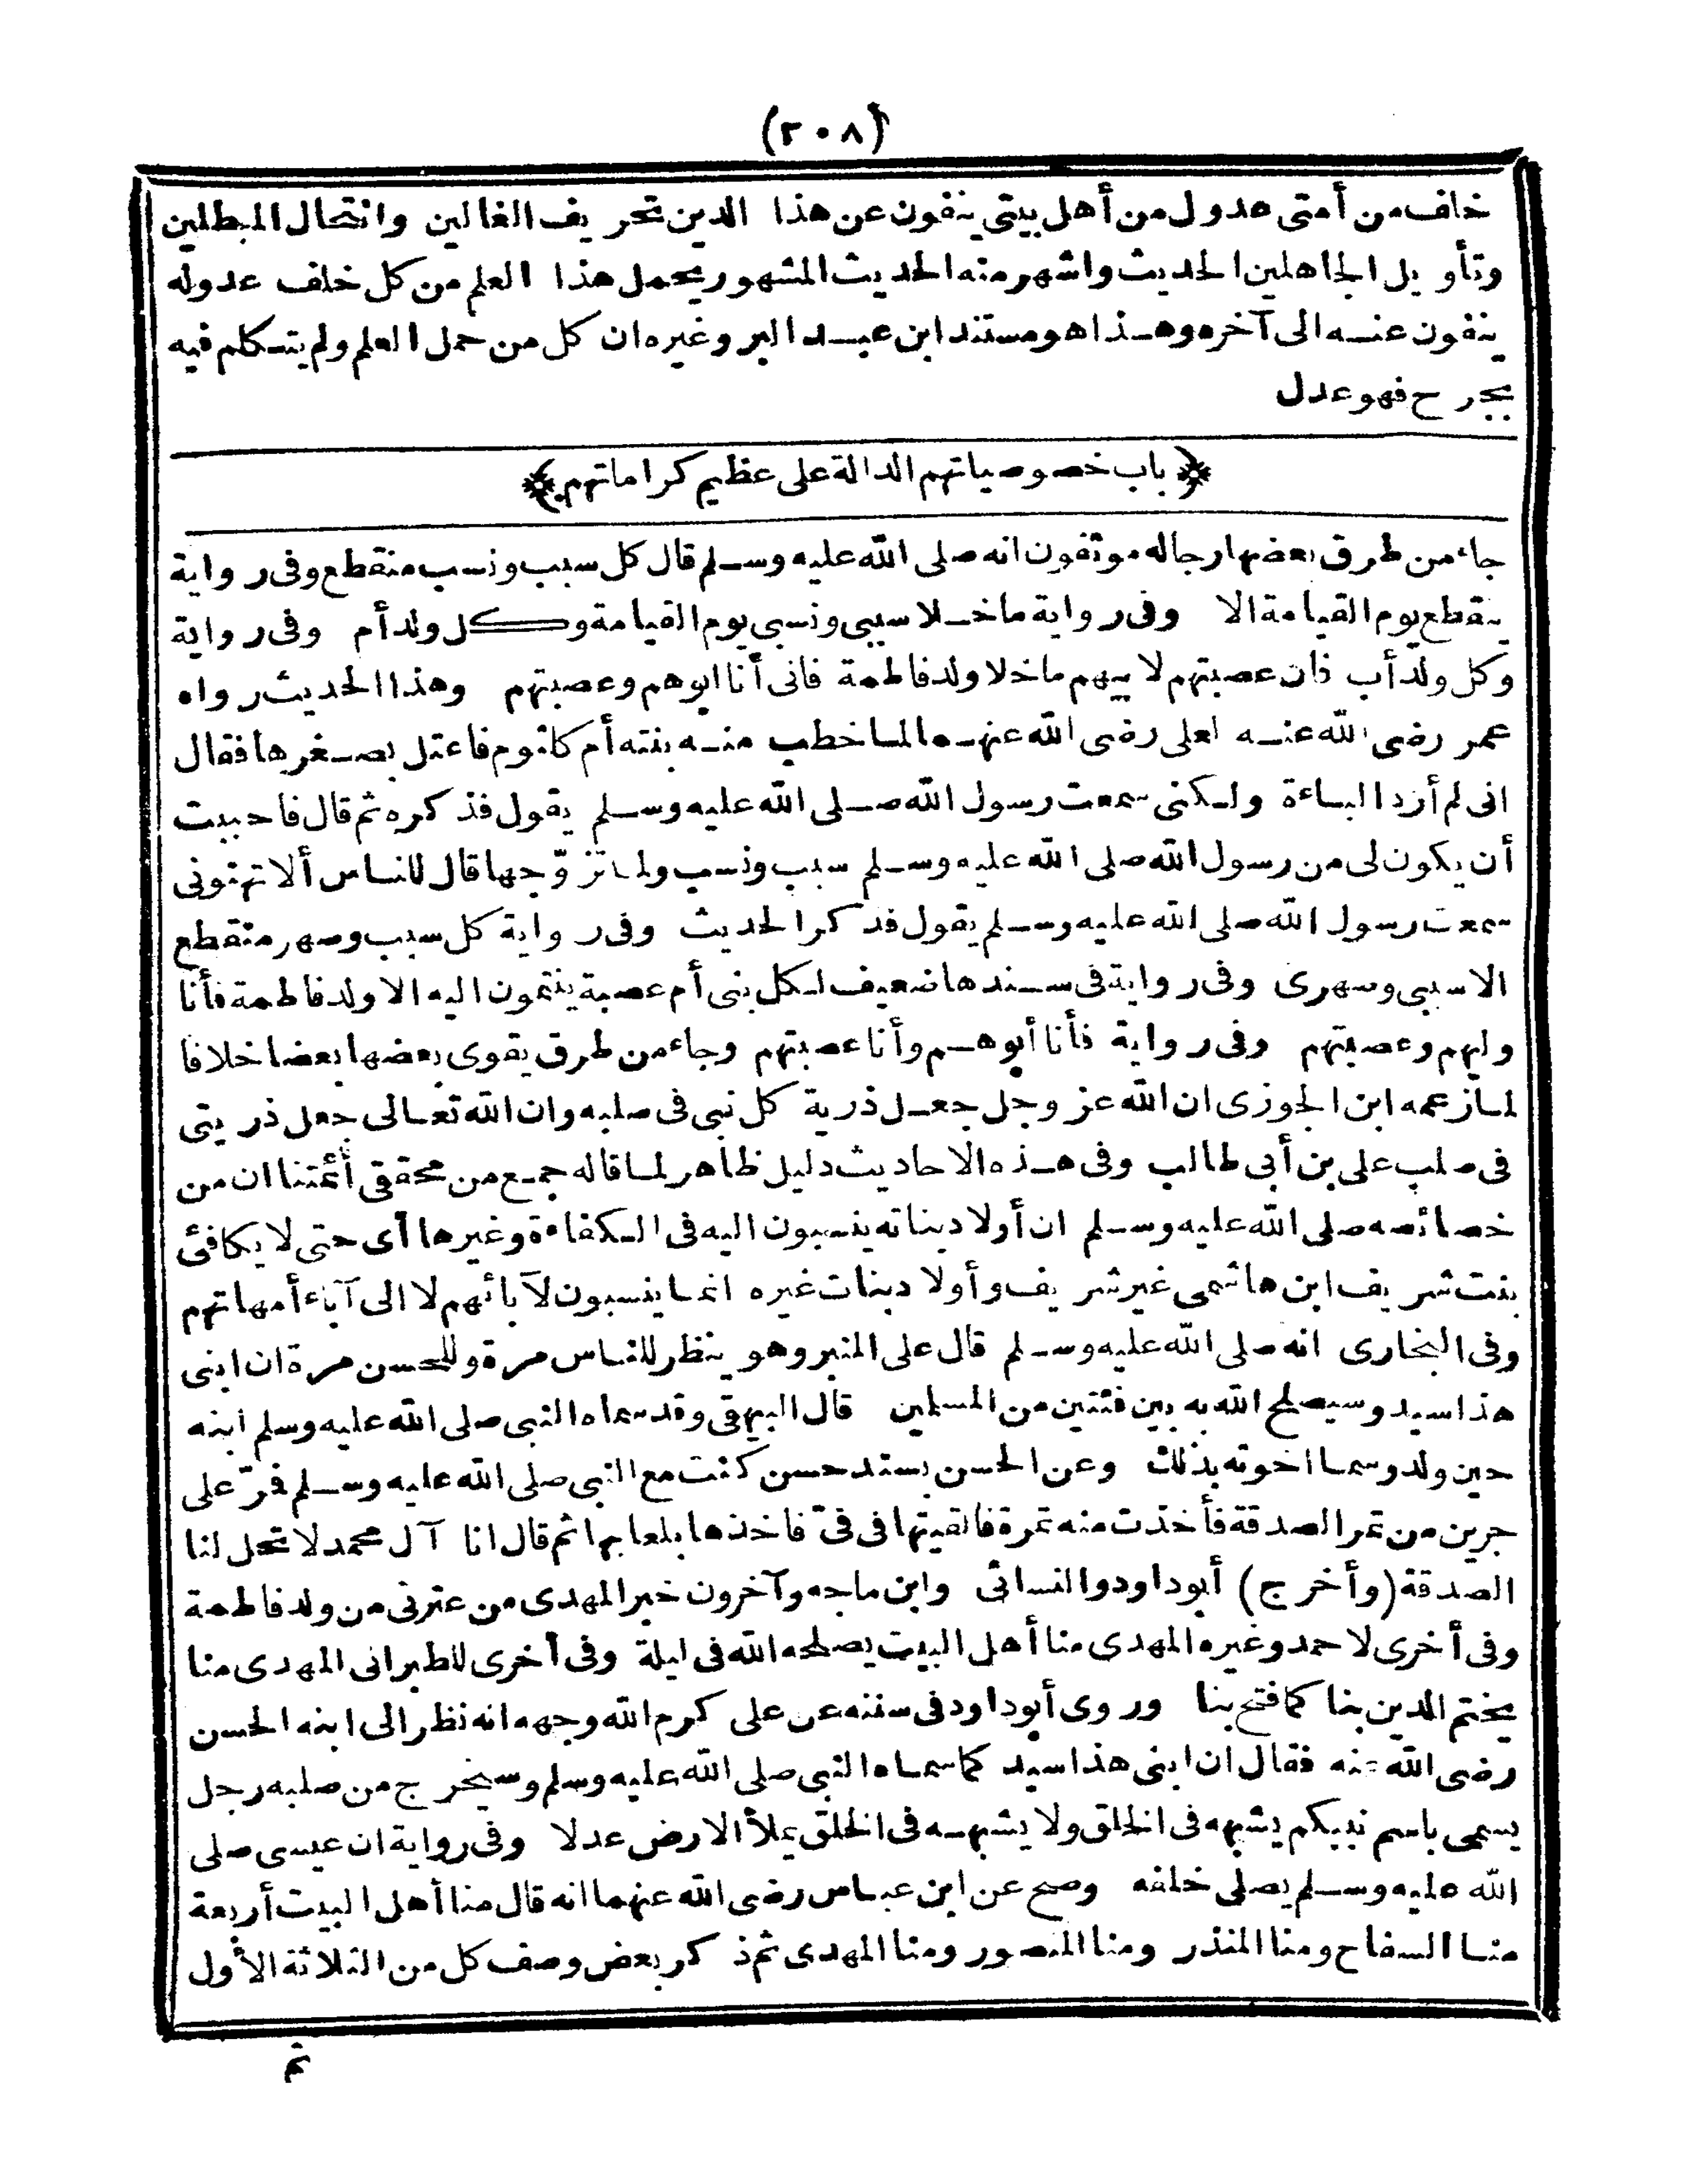 (٢٠٨)
خلف من أمتى عدول من أهل بيتي ينفون عن هذا الدين تحريف الغالين وانتحال المبطلين
وتأويل الجاهلين الحديث واشهر منه الحديث المشهور يحمل هذا العلم من كل خلف عدوله
ينفون عنه الى آخره وهذا هو مستند ابن عبد البر وغيره ان كل من حمل العلم ولم يتكلم فيه
بجرح فهو عدل
﴿باب خصوصياتهم الدالة على عظيم كراماتهم﴾
جاء من طرق بعضها رجاله موثقون انه صلى الله عليه وسلم قال كل سبب ونسب منقطع وفى رواية
ينقطع يوم القيامة الا وفى رواية ما خلا سببى ونسبى يوم القيامة وكل ولد أم وفى رواية
وكل ولد أب فان عصبتهم لابيهم ما خلا ولد فاطمة فانى أنا ابوهم وعصبتهم وهذا الحديث رواه
عمر رضى الله عنه لعلى رضى الله عنهما لما خطب منه بنته أم كلثوم فاعتل بصغرها فقال
انى لم أرد الباءة ولكنى سمعت رسول الله صلى الله عليه وسلم يقول فذكره ثم قال فاحببت
أن يكون لى من رسول الله صلى الله عليه وسلم سبب ونسب ولما تزوّجها قال للناس ألا تهنونى
سمعت رسول الله صلى الله عليه وسلم يقول فذكر الحديث وفى رواية كل سبب وصهر منقطع
الا سببى وصهرى وفى رواية فى سندها ضعيف لكل بنى أم عصبة ينتمون اليه الا ولد فاطمة فأنا
وليهم وعصبتهم وفى رواية فأنا أبوهم وأنا عصبتهم وجاء من طرق يقوى بعضها بعضا خلافا
لما زعمه ابن الجوزى ان الله عز وجل جعل ذرية كل نبى فى صلبه وان الله تعالى جعل ذريتى
فى صلب على بن أبى طالب وفى هذه الاحاديث دليل ظاهر لما قاله جمع من محققى أئمتنا ان من
خصائصه صلى الله عليه وسلم ان أولاد بناته ينسبون اليه فى الكفاءة وغيرها أى حتى لا يكافئ
بنت شريف ابن هاشمى غير شريف وأولاد بنات غيره انما ينسبون لآبائهم لا الى آباء أمهاتهم
وفى البخارى انه صلى الله عليه وسلم قال على المنبر وهو ينظر للناس مرة وللحسن مرة ان ابنى
هذا سيد وسيصلح الله به بين فئتين من المسلمين قال البيهقى وقد سماه النبى صلى الله عليه وسلم ابنه
حين ولد وسما اخوته بذلك وعن الحسن بسند حسن كنت مع النبى صلى الله عليه وسلم فمرّ على
جرين من تمر الصدقة فأخذت منه تمرة فالقيتها فى فىّ فاخذها بلعابها ثم قال انا آل محمد لا تحل لنا
الصدقة (وأخرج) أبو داود والنسائى وابن ماجه وآخرون خبر المهدى من عترتى من ولد فاطمة
وفى أخرى لاحمد وغيره المهدى منا أهل البيت يصلحه الله فى ليلة وفى أخرى للطبرانى المهدى منا
يختم الدين بنا كما فتح بنا وروى أبو داود فى سننه عن على كرم الله وجهه انه نظر الى ابنه الحسن
رضى الله عنه فقال ان ابنى هذا سيد كما سماه النبى صلى الله عليه وسلم وسيخرج من صلبه رجل
يسمى باسم نبيكم يشبهه فى الخلق ولا يشبهه فى الخلق يملأ الارض عدلا وفى رواية ان عيسى صلى
الله عليه وسلم يصلى خلفه وصح عن ابن عباس رضى الله عنهما انه قال منا أهل البيت أربعة
منا السفاح ومنا المنذر ومنا المنصور ومنا المهدى ثم ذكر بعض وصف كل من الثلاثة الأول
ثم